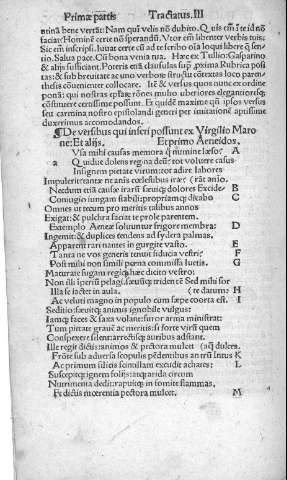 Primæ partis Tractatus.III
tinā bene vertā: Nam qui velis nō dubito. Quis em̄ te id nō
faciat: Homine certe nō sperandū. Vtor em̄ libenter verbis tuis:
Sic em̄ inscripsi. Iuuat certe cū ad te scribo oīa loqui libere q̄ sen
tio. Salua pace. Cū bona venia tua. Hæc ex Tullio: Gasparino
& alijs sufficiant. Poteris etiā clausulas sup̄ proxīa Rubrica posi
tas: & sub breuitate ac vno verbo structu cōtextas loco paren-
thesis cōuenienter collocare. Itē & versus quos nunc ex ordine
ponā: qui nostras epistolares rōnes multo vberiores elegantioresq;
cōstituere certissime possunt. Et quidē maxime q̄n ipsos versus
seu carmina nostro epistolandi generi per imitationē aptissime
duxerimus accomodandos.
¶De versibus qui inseri possunt ex Virgilio Maro
ne: Et alijs. Et primo Aeneidos.
Vsa mihi causas memora q̄ numine læso: A
Quidue dolens regina deū: tot voluere casus
Insignem pietate virum: tot adire labores
Impulerit: tantæ ne aīs cœlestibus iræ:
Necdum etiā causæ irarū sæuiq; dolores Excide B
Connugio iungam stabili: propriamq; dicabo C
Omnes ut tecum pro meritis talibus annos
Exigat: & pulchra faciat te prole parentem.
Exemplo Aeneæ soluuntur frigore membra: D
Ingemit: & duplices tendens ad sydera palmas.
Apparent rari nantes in gurgite vasto. E
Tanta ne vos generis tenuit fiducia vestri: F
Post mihi non simili pœna commissa luetis. G
Maturate fugam regiq; hæc dicito vestro:
Non illi iperiū pelagi sæuūq; tridentē Sed mihi sor
Illa se iactet in aula. H
Ac veluti magno in populo cum sæpe coorta est. I
Seditio: sæuitq; animis ignobile vulgus:
Iamq; faces & saxa volant: furor arma ministrat:
Tum pietate grauē ac meritis: si forte virū quem
Conspexere: silent: arrectisq; auribus adstant.
Ille regit dictis: animos & pectora mulcet
Frōte sub aduersa scopulis pēdentibus antrū Intus K
Ac primum silicis scintillam excudit achates: L
Suscepitq; ignem folijs: atq; arida circum
Nutrimenta dedit: rapuitq; in fomite flammas.
Et dictis mœrentia pectora mulcet. M